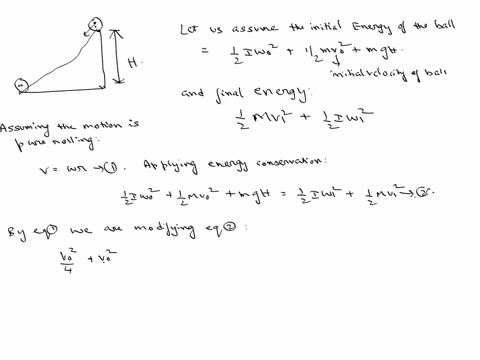 Let us assume the initial Energy of the ball
= 1/2 Iω₀² + 1/2 mv₀² + mgH.
initial velocity of ball
H.
and final energy:
1/2 Mv₁² + 1/2 Iω₁²
Assuming the motion is
pure rolling:
v = ωr → ①. Applying energy conservation:
1/2 Iω₀² + 1/2 Mv₀² + mgH = 1/2 Iω₁² + 1/2 Mv₁² → ②.
By eq① we are modifying eq②:
v₀²/4 + v₀²